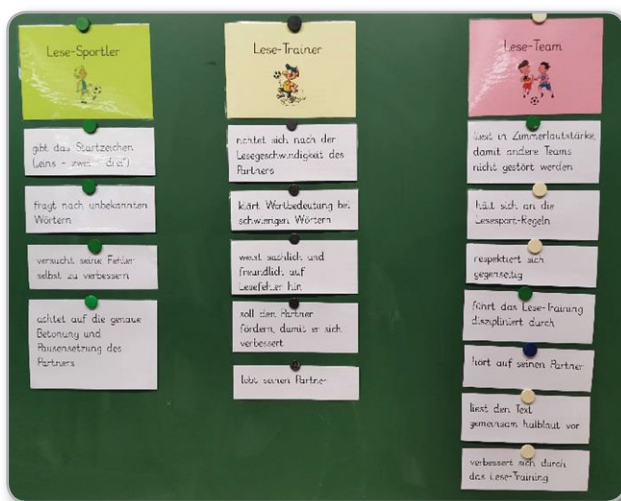 Lese-Sportler
gibt das Startzeichen
(eins - zwei - drei)
fragt nach unbekannten
Wörtern
versucht seine Fehler
selbst zu verbessern
achtet auf die genaue
Betonung und
Pausensetzung des
Partners
Lese-Trainer
richtet sich nach der
Lesegeschwindigkeit des
Partners
klärt Wortbedeutung bei
schwierigen Wörtern
weist sachlich und
freundlich auf
Lesefehler hin
soll den Partner
fördern, damit er sich
verbessert
lobt seinen Partner
Lese-Team
liest in Zimmerlautstärke,
damit andere Teams
nicht gestört werden
hält sich an die
Lesesport-Regeln
respektiert sich
gegenseitig
führt das Lese-Training
diszipliniert durch
hört auf seinen Partner
liest den Text
gemeinsam halblaut vor
verbessert sich durch
das Lese-Training